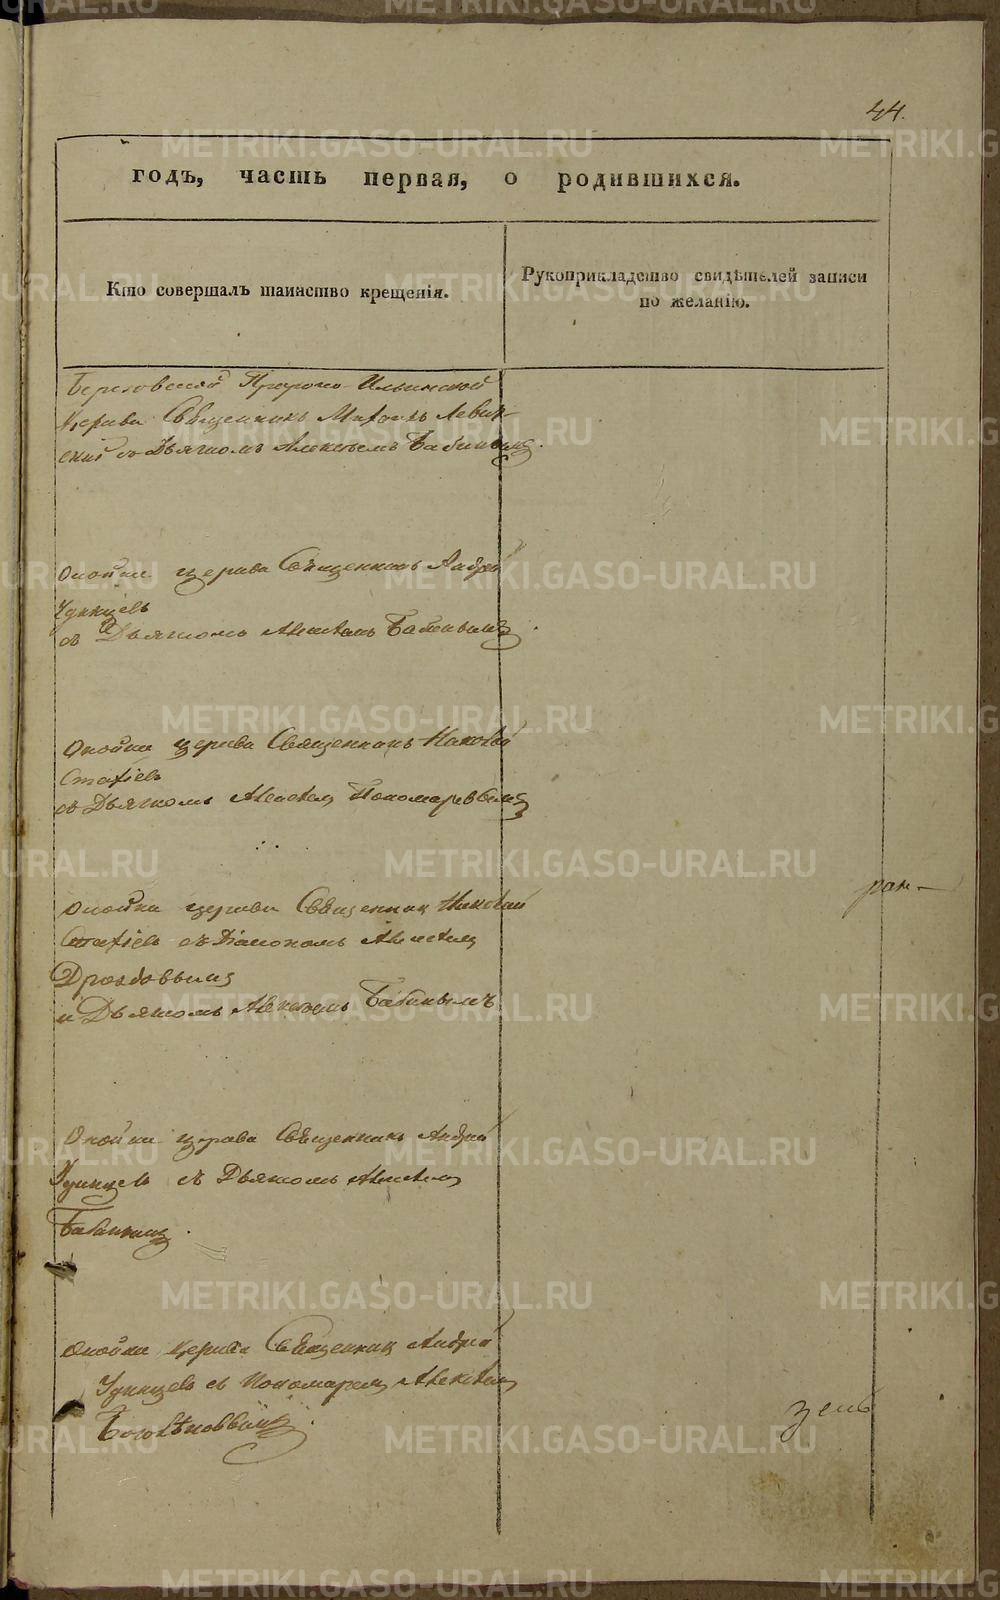 44.
годъ, часть первая, о родившихся.
Кто совершалъ таинство крещенія.
Рукоприкладство свидѣтелей записи
по желанію.
Березовской Пророко-Ильинской
Церкви Священникъ Левит-
скій съ Дьячкомъ Алексѣемъ Бабинымъ.
Оной же церкви Священникъ Андрей
Удинцевъ
съ Дьячкомъ Алексѣемъ Бабинымъ.
Оной же церкви Священникъ
Стафіевъ
съ Дьячкомъ Алексѣемъ Пономаревымъ
Оной же церкви Священникъ
Стафіевъ съ Діакономъ Алексѣемъ
Дроздовымъ
и Дьячкомъ Алексѣемъ Бабинымъ
Оной же церкви Священникъ Андрей
Удинцевъ съ Дьячкомъ Алексѣемъ
Бабинымъ.
Оной же церкви Священникъ Андрей
Удинцевъ съ Пономаремъ Алексѣемъ
METRIKI.GASO-URAL.RU